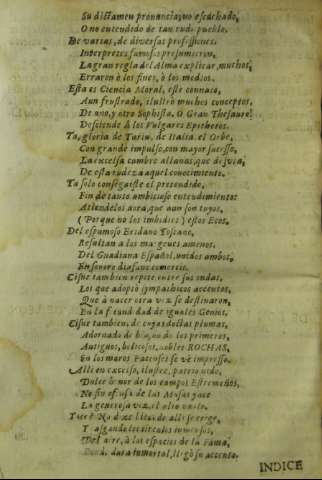 Su dictamen pronuncia; no escuchado,
O no entendido de tan rudo pueblo.
De varias, de diversas professiones,
Interpretes famosos presumieron,
La gran regla del Alma explicar, muchos,
Erraron ò los fines, ò los medios.
Esta es Ciencia Moral, este connato,
Aun frustrado, ilustrò muchos conceptos,
De uno, y otro Sophista. O Gran Thesauro!
Desciende à los Vulgares Epitheros.
Tu, gloria de Turin, de Italia, el Orbe,
Con grande impulso, con mayor sucesso,
La excelsa cumbre allanas, que de
De esta rudeza aquel conocimiento.
Tu solo conseguiste el pretendido,
Fin de tanto ambicioso entendimiento:
Atiende aora, que aun son tuyos,
(Porque no los imbidies) estos Ecos.
Del espumoso Eridano Toscano,
Resultan a los margenes amenos.
Del Guadiana Español, unidos ambos,
En sonoro diafano comercio.
Cisne tambien repite, entre sus ondas,
Los que adoptò sympathicos accentos,
Que à nacer otra vez se destinaron,
En la fecundidad de iguales Genios.
Cisne tambien, de cuyas doctas plumas,
Adornado de los primeros,
Antiguos, belicosos, nobles ROCHAS,
En los muros se vè impresso.
Alli en excelso, ilustre, patrio nido,
Dulce honor de los campos Estremeños,
No sin de las Musas yace
La generosa vez, el otio
de alli se erge,
Y asgando los circulos inmensos,
Del aire, à los espacios de la Fama,
durarà inmortal, llegò su accento.
INDICE